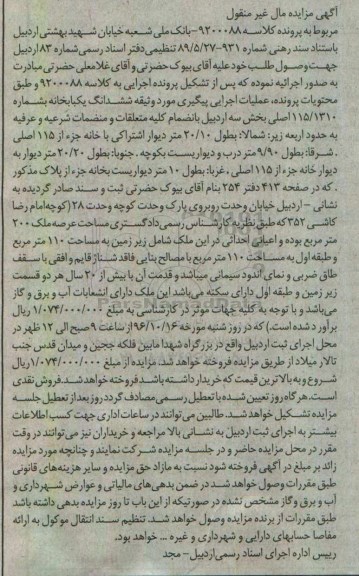 آگهی مزایده مال غیر منقول
مربوط به پرونده کلاسه ۹۲۰۰۰۸۸-بانک ملی شعبه خیابان شهید بهشتی اردبیل
باستناد سند رهنی شماره ۹۳۱-۸۹/۵/۲۷ تنظیمی دفتر اسناد رسمی شماره ۸۳ اردبیل
جهت وصول طلب خود علیه آقای بیوک حضرتی و آقای غلامعلی حضرتی مبادرت
به صدور اجرائیه نموده که پس از تشکیل پرونده اجرایی به کلاسه ۹۲۰۰۰۸۸ و طبق
محتویات پرونده، عملیات اجرایی پیگیری مورد وثیقه ششدانگ یکبابخانه بشماره
۱۱۵/۱۳۱۰ اصلی بخش سه اردبیل بانضمام کلیه متعلقات و منضمات شرعیه و عرفیه
به حدود اربعه زیر: شمالا: بطول ۲۰/۱۰ متر دیوار اشتراکی با خانه جزء از ۱۱۵ اصلی
. شرقا: بطول ۹/۹۰ متر درب و دیواریست بکوچه . جنوبا: بطول ۲۰/۲۰ متر دیوار به
دیوار خانه جزء از ۱۱۵ اصلی ، غربا: بطول ۱۰ متر دیواریست بخانه جزء از پلاک مذکور
. که در صفحه ۴۱۳ دفتر ۲۵۴ بنام آقای بیوک حضرتی ثبت و سند صادر گردیده به
نشانی - اردبیل خیابان وحدت روبروی پارک وحدت کوچه وحدت ۲۸ (کوچه امام رضا
کاشی ۳۵۲ که طبق نظریه کارشناس رسمی دادگستری مساحت عرصه ملک ۲۰۰
متر مربع بوده و اعیانی احداثی در این ملک شامل زیر زمین به مساحت ۱۱۰ متر مربع
و طبقه اول به مساحت ۱۱۰ متر مربع با مصالح بنایی فاقد شناژ قایم و افقی با سقف
طاق ضربی و نمای اندود سیمانی میباشد و قدمت آن با بیش از ۲۰ سال هر دو قسمت
زیر زمین و طبقه اول دارای سکنه می باشد این ملک دارای انشعابات آب و برق و گاز
می باشد و با توجه به کلیه جهات موثر در کارشناسی به مبلغ ۱/۰۷۴/۰۰۰/۰۰۰ ریال
برآورد شده است.) که در روز شنبه مورخه ۹۶/۱۰/۱۶ از ساعت ۹ صبح الی ۱۲ ظهر در
محل اجرای ثبت اردبیل واقع در بزرگراه شهدا مابین فلکه ججین و میدان قدس جنب
تالار میلاد از طریق مزایده فروخته خواهد شد. مزایده از مبلغ ۱/۰۷۴/۰۰۰/۰۰۰ ریال
شروع و به بالاترین قیمت که خریدار داشته باشد فروخته خواهد شد. فروش نقدی
است. هر گاه روز تعیین شده با تعطیل رسمی مصادف گردد روز بعد از تعطیل جلسه
مزایده تشکیل خواهد شد. طالبین می توانند در ساعات اداری جهت کسب اطلاعات
بیشتر به اجرای ثبت اردبیل به نشانی بالا مراجعه و خریداران نیز می توانند در وقت
مقرر در محل مزایده حاضر و در جلسه مزایده شرکت نمایند و چنانچه مورد مزایده
زائد بر مبلغ در آگهی فروخته شود نسبت به مازاد حق مزایده و سایر هزینه های قانونی
طبق مقررات وصول خواهد شد در ضمن بدهی های مالیاتی و عوارض شهرداری و
آب و برق و گاز مشخص نشده در صورتیکه از این باب تا روز مزایده بدهی داشته باشد
طبق مقررات از برنده مزایده وصول خواهد شد. تنظیم سند انتقال موکول به ارائه
مفاصا حسابهای دارایی و شهرداری و غیره ... خواهد بود.
رییس اداره اجرای اسناد رسمی اردبیل- مجد